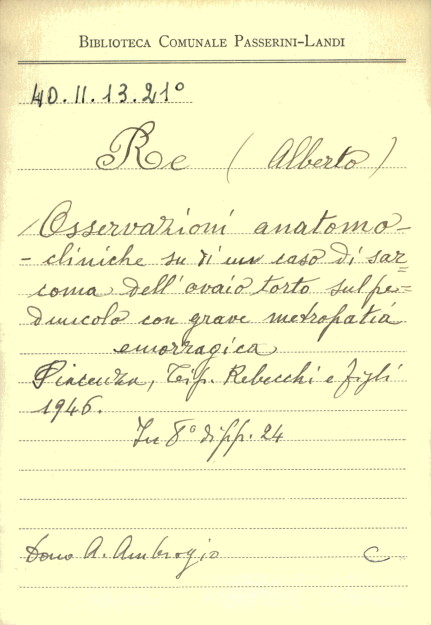 BIBLIOTECA COMUNALE PASSERINI-LANDI
40.II.13.21°
Re (Alberto)
Osservazioni anatomo-
- cliniche su di un caso di sar=
coma dell'ovaio torto sul pe=
duncolo con grave metropatia
emorragica
Piacenza, Tip. Rebecchi e figli
1946.
In 8° di pp. 24
Dono A. Ambrogio C